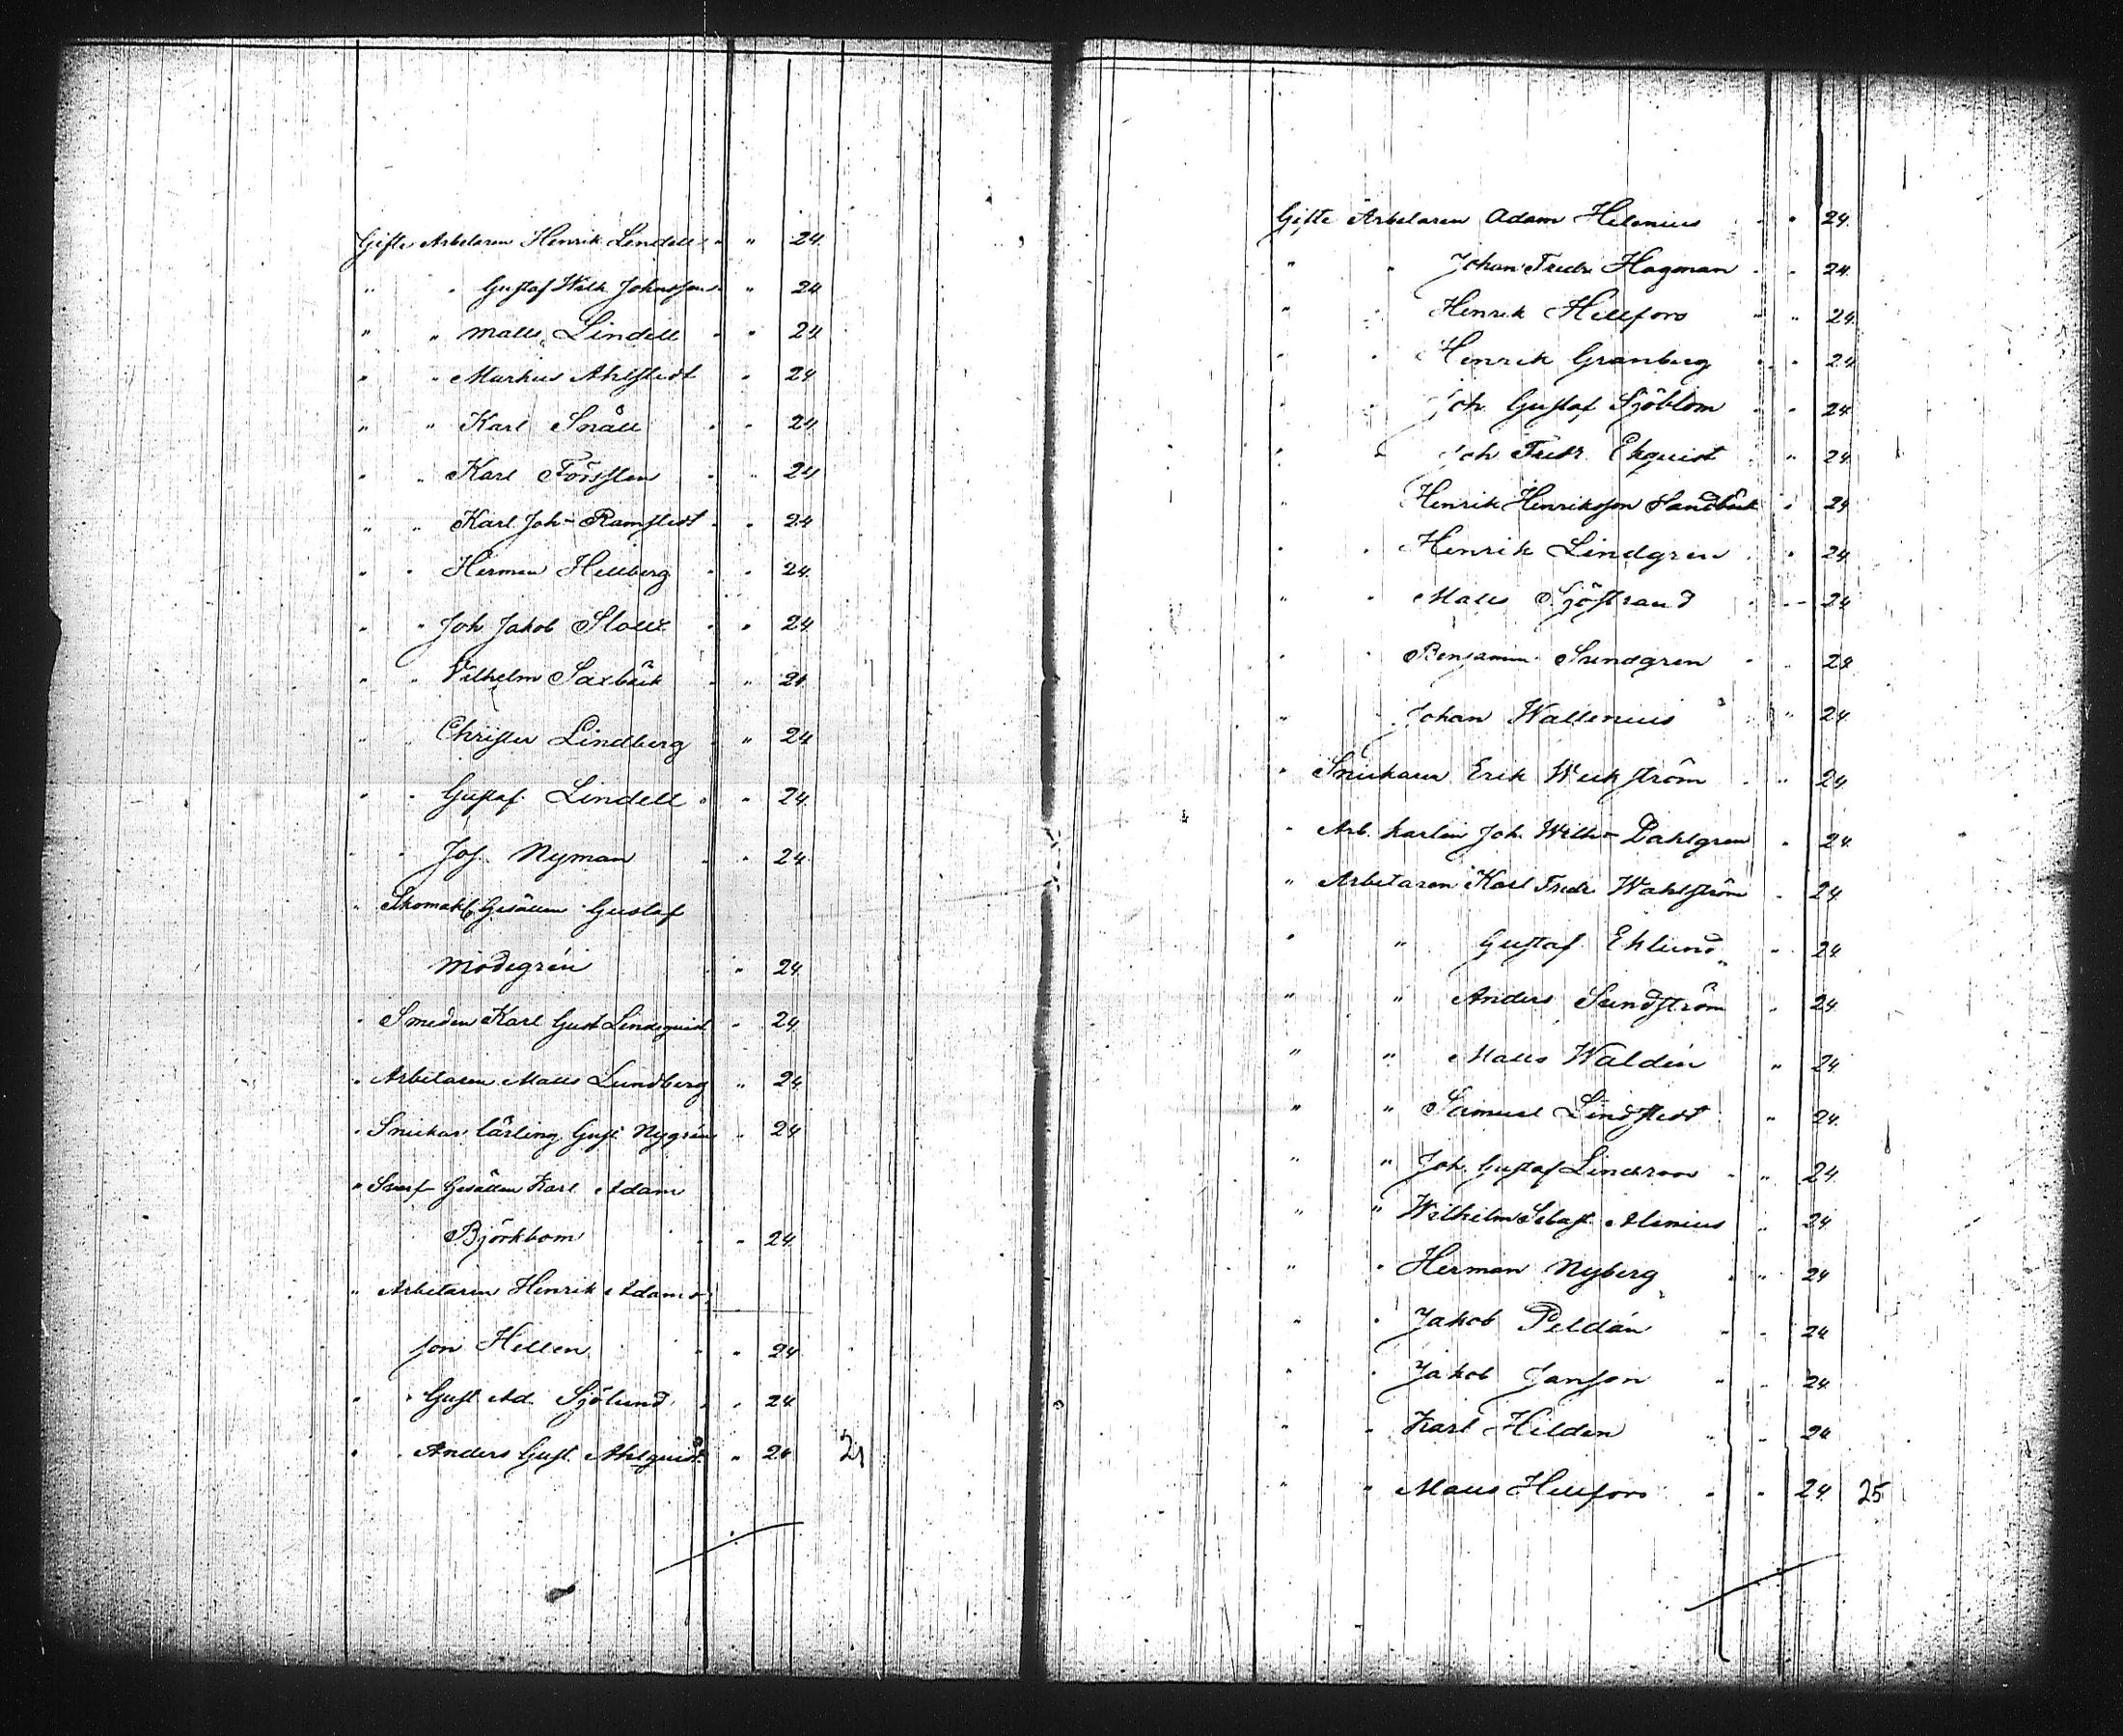 Gifte Arbetaren Henrik Lindell " " 24
" " Gustaf Wilh. Johnsson " 24
" " Matts Lindell " " 24
" " Markus Ahlstedt " 24
" " Karl Snäll " " 24
" " Karl Forsten " " 24
" " Karl Joh- Ramstedt " " 24
" " Herman Hellberg " " 24
" " Joh Jakob " " 24
" " Vilhelm Saxbäck " " 24
" " Christer Lindberg " " 24
" " Gustaf Lindell " " 24
" " Jos. Nyman " " 24
" Skomak. Gesällen Gustaf
Modegrén " " 24
" Smeden Karl Gust Lindquist " 24
" Arbetaren Matts Lundberg " 24
" Snickar lärling Gust Nygrén " 24
" Svarf- Gesällen Karl Adam
Björkbom " " 24
" Arbetaren Henrik Adams-
son Hellen " " 24
" " Gust. Ad. Sjölund " " 24
" " Anders Gust. Ahlquist " 24
Gifte Arbetaren Adam Helenius " " 24
" " Johan Fredr. Hagman " " 24
" " Henrik Hellfors " " 24
" " Henrik Granberg " " 24
" " Joh. Gustaf Sjöblom " " 24
" " Joh Fredr. Ekquist " " 24
" Henrik Henriksson Sandbäck " 24
" " Henrik Lindgren " " 24
" " Matts Sjöstrand " " 24
" " Benjamin Sundgren " " 24
" " Johan Wallenius " " 24
" Snickaren Erik Weckström " " 24
" Arb. karlen Joh. Wilh- Dahlgren " 24
" Arbetaren Karl Fredr Wahlström " 24
" " Gustaf Eklund " " 24
" " Anders Sundström " 24
" " Matts Waldén " 24
" " Samuel Lindstedt " 24
" " Joh. Gustaf Lindroos " " 24
" " Wilhelm Sebast. Alenius " 24
" " Herman Nyberg " " 24
" " Jakob Peldán " " 24
" " Jakob Janson " " 24
" " Karl Hilden " " 24
" " Matts Hellfors " " 24 25